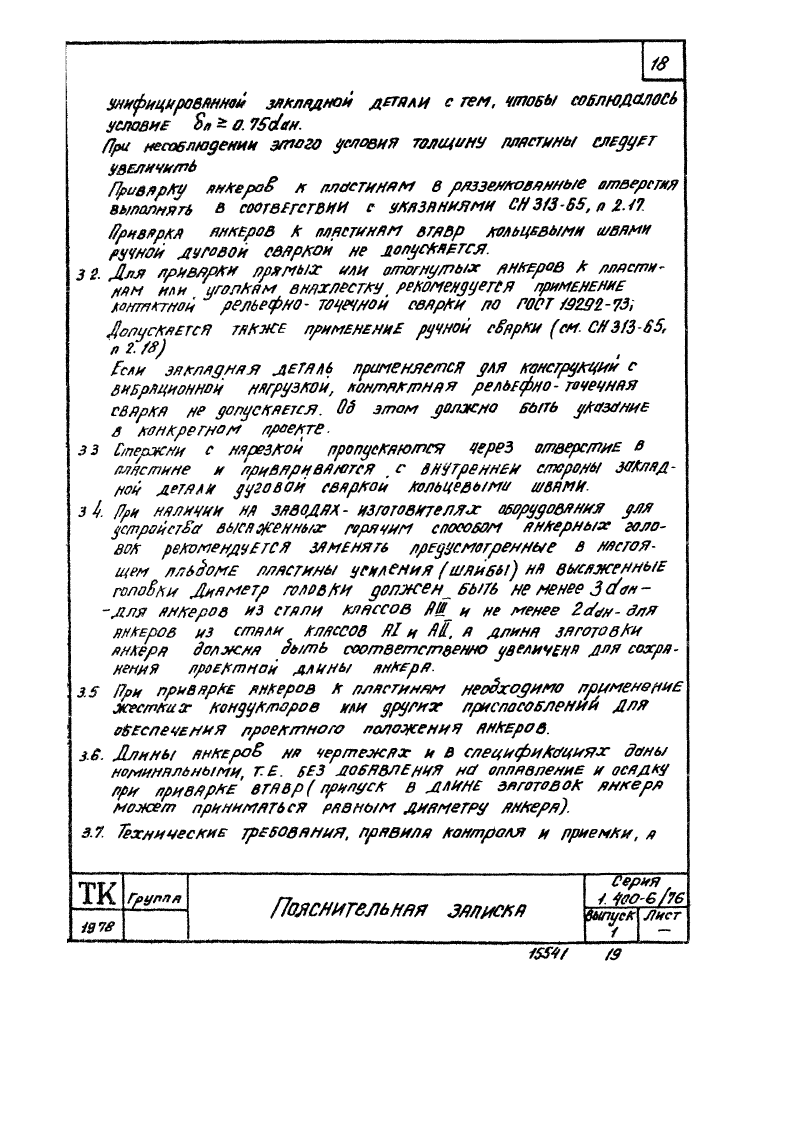 18
унифицированной закладной детали с тем, чтобы соблюдалось
условие δп ≥ 0.75dан.
При несоблюдении этого условия толщину пластины следует
увеличить
Приварку анкеров к пластинам в раззенкованные отверстия
выполнять в соответствии с указаниями СН 313-65, п 2.17.
Приварка анкеров к пластинам втавр кольцевыми швами
ручной дуговой сваркой не допускается.
3 2. Для приварки прямых или отогнутых анкеров к пласти-
нам или уголкам внахлестку рекомендуется применение
контактной рельефно-точечной сварки по ГОСТ 19292-73;
Допускается также применение ручной сварки (см. СН 313-65,
п 2.18)
Если закладная деталь применяется для конструкций с
вибрационной нагрузкой, контактная рельефно-точечная
сварка не допускается. Об этом должно быть указание
в конкретном проекте.
3 3 Стержни с нарезкой пропускаются через отверстие в
пластине и привариваются с внутренней стороны заклад-
ной детали дуговой сваркой кольцевыми швами.
3 4. При наличии на заводах-изготовителях оборудования для
устройства высаженных горячим способом анкерных голо-
вок рекомендуется заменять предусмотренные в настоя-
щем альбоме пластины усиления (шайбы) на высаженные
головки Диаметр головки должен быть не менее 3dан-
-для анкеров из стали классов АIII и не менее 2dан-для
анкеров из стали классов АI и АII, а длина заготовки
анкера должна быть соответственно увеличена для сохра-
нения проектной длины анкера.
3.5 При приварке анкеров к пластинам необходимо применение
жестких кондукторов или других приспособлений для
обеспечения проектного положения анкеров.
3.6. Длины анкеров на чертежах и в спецификациях даны
номинальными, т.е. без добавления на оплавление и осадку
при приварке втавр (припуск в длине заготовок анкера
может приниматься равным диаметру анкера).
3.7. Технические требования, правила контроля и приемки, а
ТК Группа Пояснительная записка Серия
1.400-6/76
1978 Выпуск Лист
1 —
15541 19